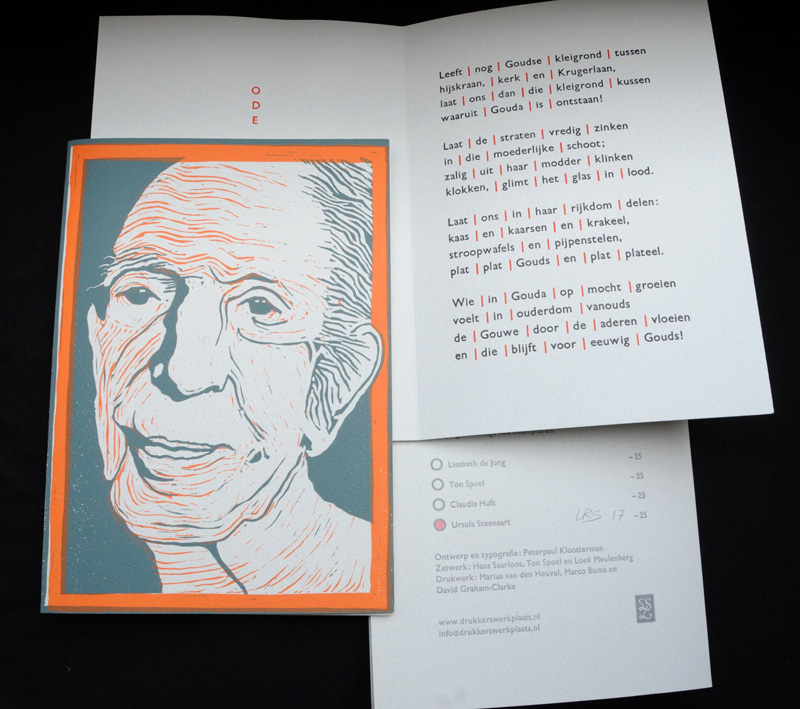 O
D
E
Leeft | nog | Goudse | kleigrond | tussen
hijskraan, | kerk | en | Krugerlaan,
laat | ons | dan | die | kleigrond | kussen
waaruit | Gouda | is | ontstaan!
Laat | de | straten | vredig | zinken
in | die | moederlijke | schoot;
zalig | uit | haar | modder | klinken
klokken, | glimt | het | glas | in | lood.
Laat | ons | in | haar | rijkdom | delen:
kaas | en | kaarsen | en | krakeel,
stroopwafels | en | pijpenstelen,
plat | plat | Gouds | en | plat | plateel.
Wie | in | Gouda | op | mocht | groeien
voelt | in | ouderdom | vanouds
de | Gouwe | door | de | aderen | vloeien
en | die | blijft | voor | eeuwig | Gouds!
Liesbeth de Jong – 25
Ton Spoel – 25
Claudia Huft – 25
Ursula Steenaart 17 – 25
Ontwerp en typografie: Peterpaul Kloosterman
Zetwerk: Hans Saarloos, Ton Spoel en Loek Meulenberg
Drukwerk: Marius van den Heuvel, Marco Buma en
David Graham-Clarke
www.drukkerswerkplaats.nl
info@drukkerswerkplaats.nl